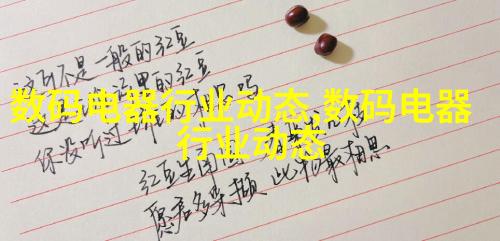 这可不是一般的红豆
里的红豆
数码电器行业动态,数码电器
行业动态
你没听过
红豆生南国
愿君多采撷 此物最相思